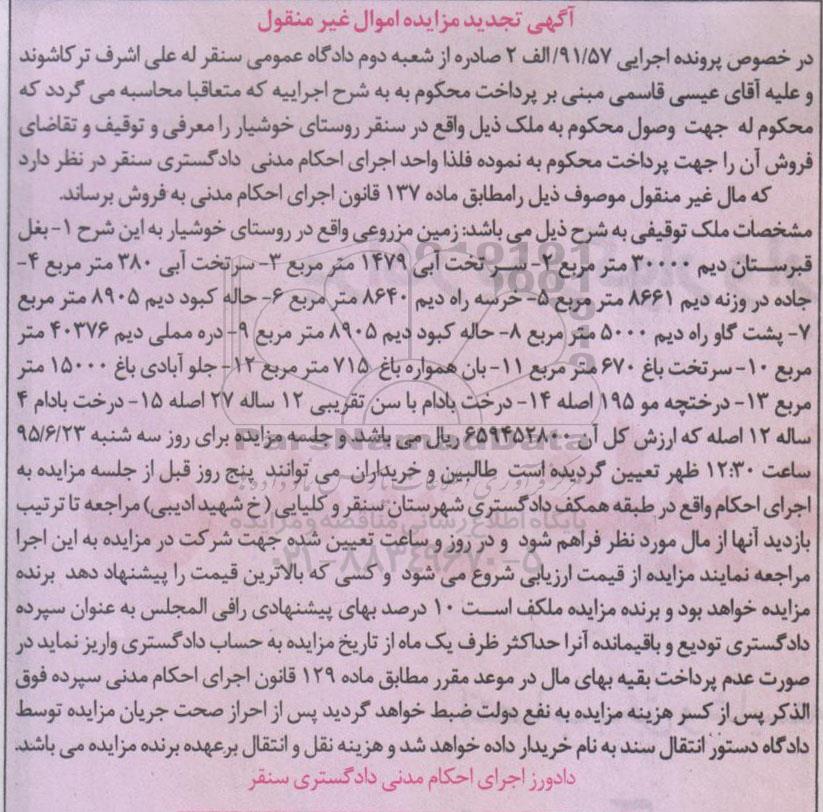 آگهی تجدید مزایده اموال غیر منقول
در خصوص پرونده اجرایی ۹۱/۵۷/الف ۲ صادره از شعبه دوم دادگاه عمومی سنقر له علی اشرف ترکاشوند
و علیه آقای عیسی قاسمی مبنی بر پرداخت محکوم به به شرح اجراییه که متعاقبا محاسبه می گردد که
محکوم له جهت وصول محکوم به ملک ذیل واقع در سنقر روستای خوشیار را معرفی و توقیف و تقاضای
فروش آن را جهت پرداخت محکوم به نموده فلذا واحد اجرای احکام مدنی دادگستری سنقر در نظر دارد
که مال غیر منقول موصوف ذیل رامطابق ماده ۱۳۷ قانون اجرای احکام مدنی به فروش برساند.
مشخصات ملک توقیفی به شرح ذیل می باشد: زمین مزروعی واقع در روستای خوشیار به این شرح ۱- بغل
قبرستان دیم ۳۰۰۰۰ متر مربع ۲- سر تخت آبی ۱۴۷۹ متر مربع ۳- سرتخت آبی ۳۸۰ متر مربع ۴-
جاده در وزنه دیم ۸۶۶۱ متر مربع ۵- خرسه راه دیم ۸۶۴۰ متر مربع ۶- حاله کبود دیم ۸۹۰۵ متر مربع
۷- پشت گاو راه دیم ۵۰۰۰ متر مربع ۸- حاله کبود دیم ۸۹۰۵ متر مربع ۹- دره مملی دیم ۴۰۳۷۶ متر
مربع ۱۰- سرتخت باغ ۶۷۰ متر مربع ۱۱- بان همواره باغ ۷۱۵ متر مربع ۱۲- جلو آبادی باغ ۱۵۰۰۰ متر
مربع ۱۳- درختچه مو ۱۹۵ اصله ۱۴- درخت بادام با سن تقریبی ۱۲ ساله ۲۷ اصله ۱۵- درخت بادام ۴
ساله ۱۲ اصله که ارزش کل آن ۶۵۹۴۵۲۸۰۰ ریال می باشد و جلسه مزایده برای روز سه شنبه ۹۵/۶/۲۳
ساعت ۱۲:۳۰ ظهر تعیین گردیده است طالبین و خریداران می توانند پنج روز قبل از جلسه مزایده به
اجرای احکام واقع در طبقه همکف دادگستری شهرستان سنقر و کلیایی (خ شهید ادیبی) مراجعه تا ترتیب
بازدید آنها از مال مورد نظر فراهم شود و در روز و ساعت تعیین شده جهت شرکت در مزایده به این اجرا
مراجعه نمایند مزایده از قیمت ارزیابی شروع می شود و کسی که بالاترین قیمت را پیشنهاد دهد برنده
مزایده خواهد بود و برنده مزایده ملکف است ۱۰ درصد بهای پیشنهادی رافی المجلس به عنوان سپرده
دادگستری تودیع و باقیمانده آنرا حداکثر ظرف یک ماه از تاریخ مزایده به حساب دادگستری واریز نماید در
صورت عدم پرداخت بقیه بهای مال در موعد مقرر مطابق ماده ۱۲۹ قانون اجرای احکام مدنی سپرده فوق
الذکر پس از کسر هزینه مزایده به نفع دولت ضبط خواهد گردید پس از احراز صحت جریان مزایده توسط
دادگاه دستور انتقال سند به نام خریدار داده خواهد شد و هزینه نقل و انتقال برعهده برنده مزایده می باشد.
دادورز اجرای احکام مدنی دادگستری سنقر
ParsNamadData
پایگاه اطلاع رسانی مناقصه و مزایده
۰۲۱-۸۸۳۴۹۶۷۰-۵